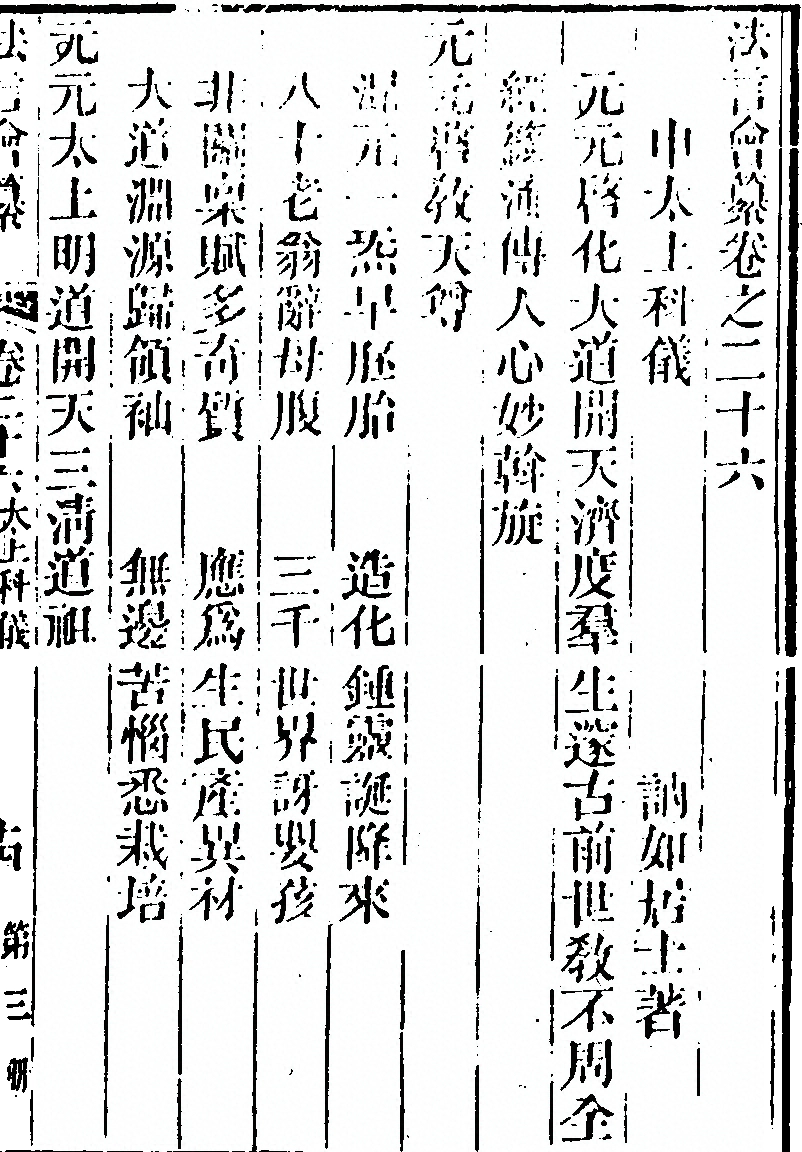 法言會纂卷之二十六
申太上科儀 訥如居士著
元元啓化大道開天濟度羣生邃古前世教不周全
經籙流傳人心妙斡旋
元元啓教天尊
混元一炁早胚胎 造化鍾靈誕降來
八十老翁辭母腹 三千世界訝嬰孩
非關稟賦多奇質 應爲生民產異材
大道淵源歸領袖 無邊苦惱悉栽培
元元太上明道開天三清道祖
法言會纂 卷二十六太上科儀 第三